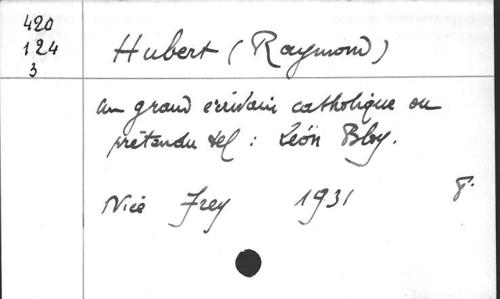 420
124
3
Hubert (Raymond)
un grand écrivain catholique ou
prétendu tel : Léon Bloy.
Nice Frey 1931 8°